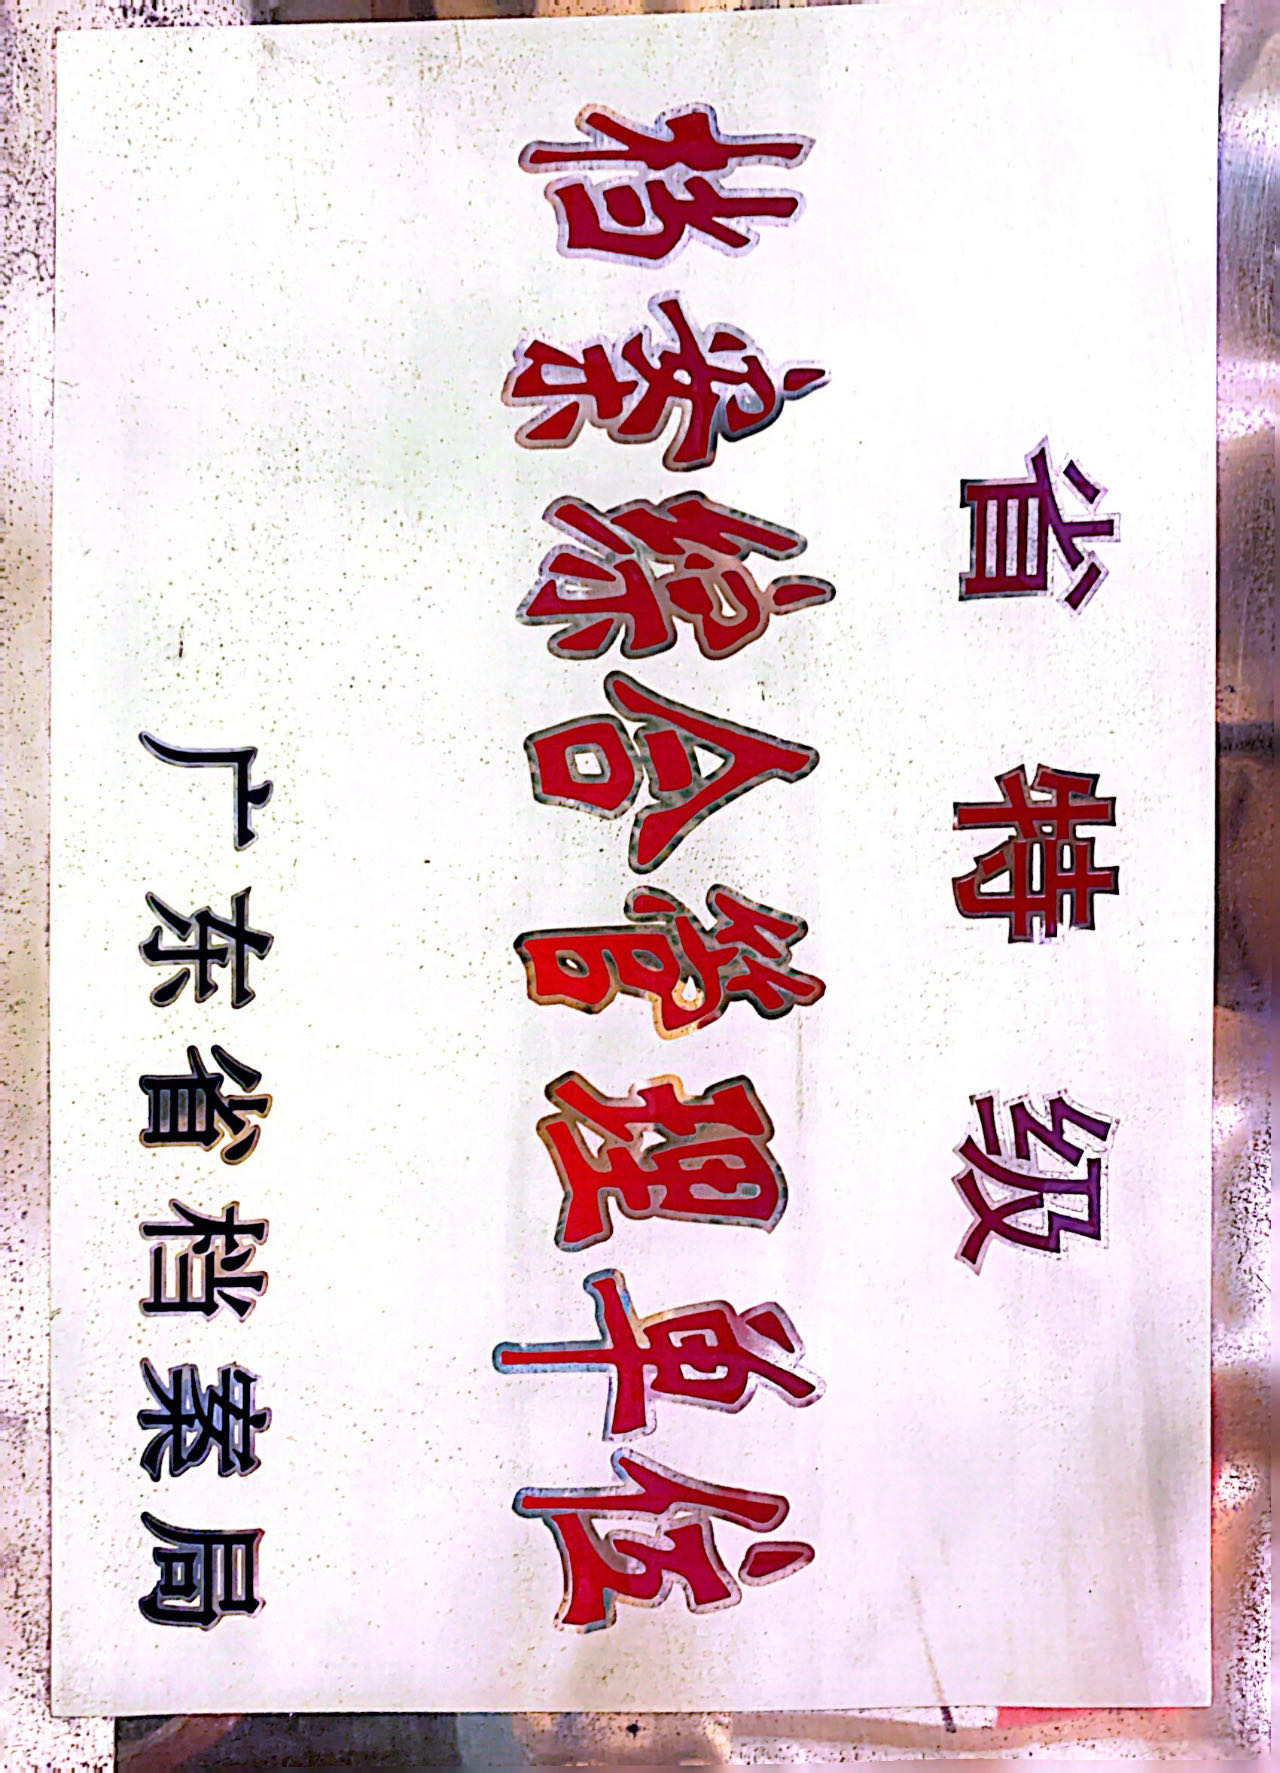 省特级
档案综合管理单位
广东省档案局